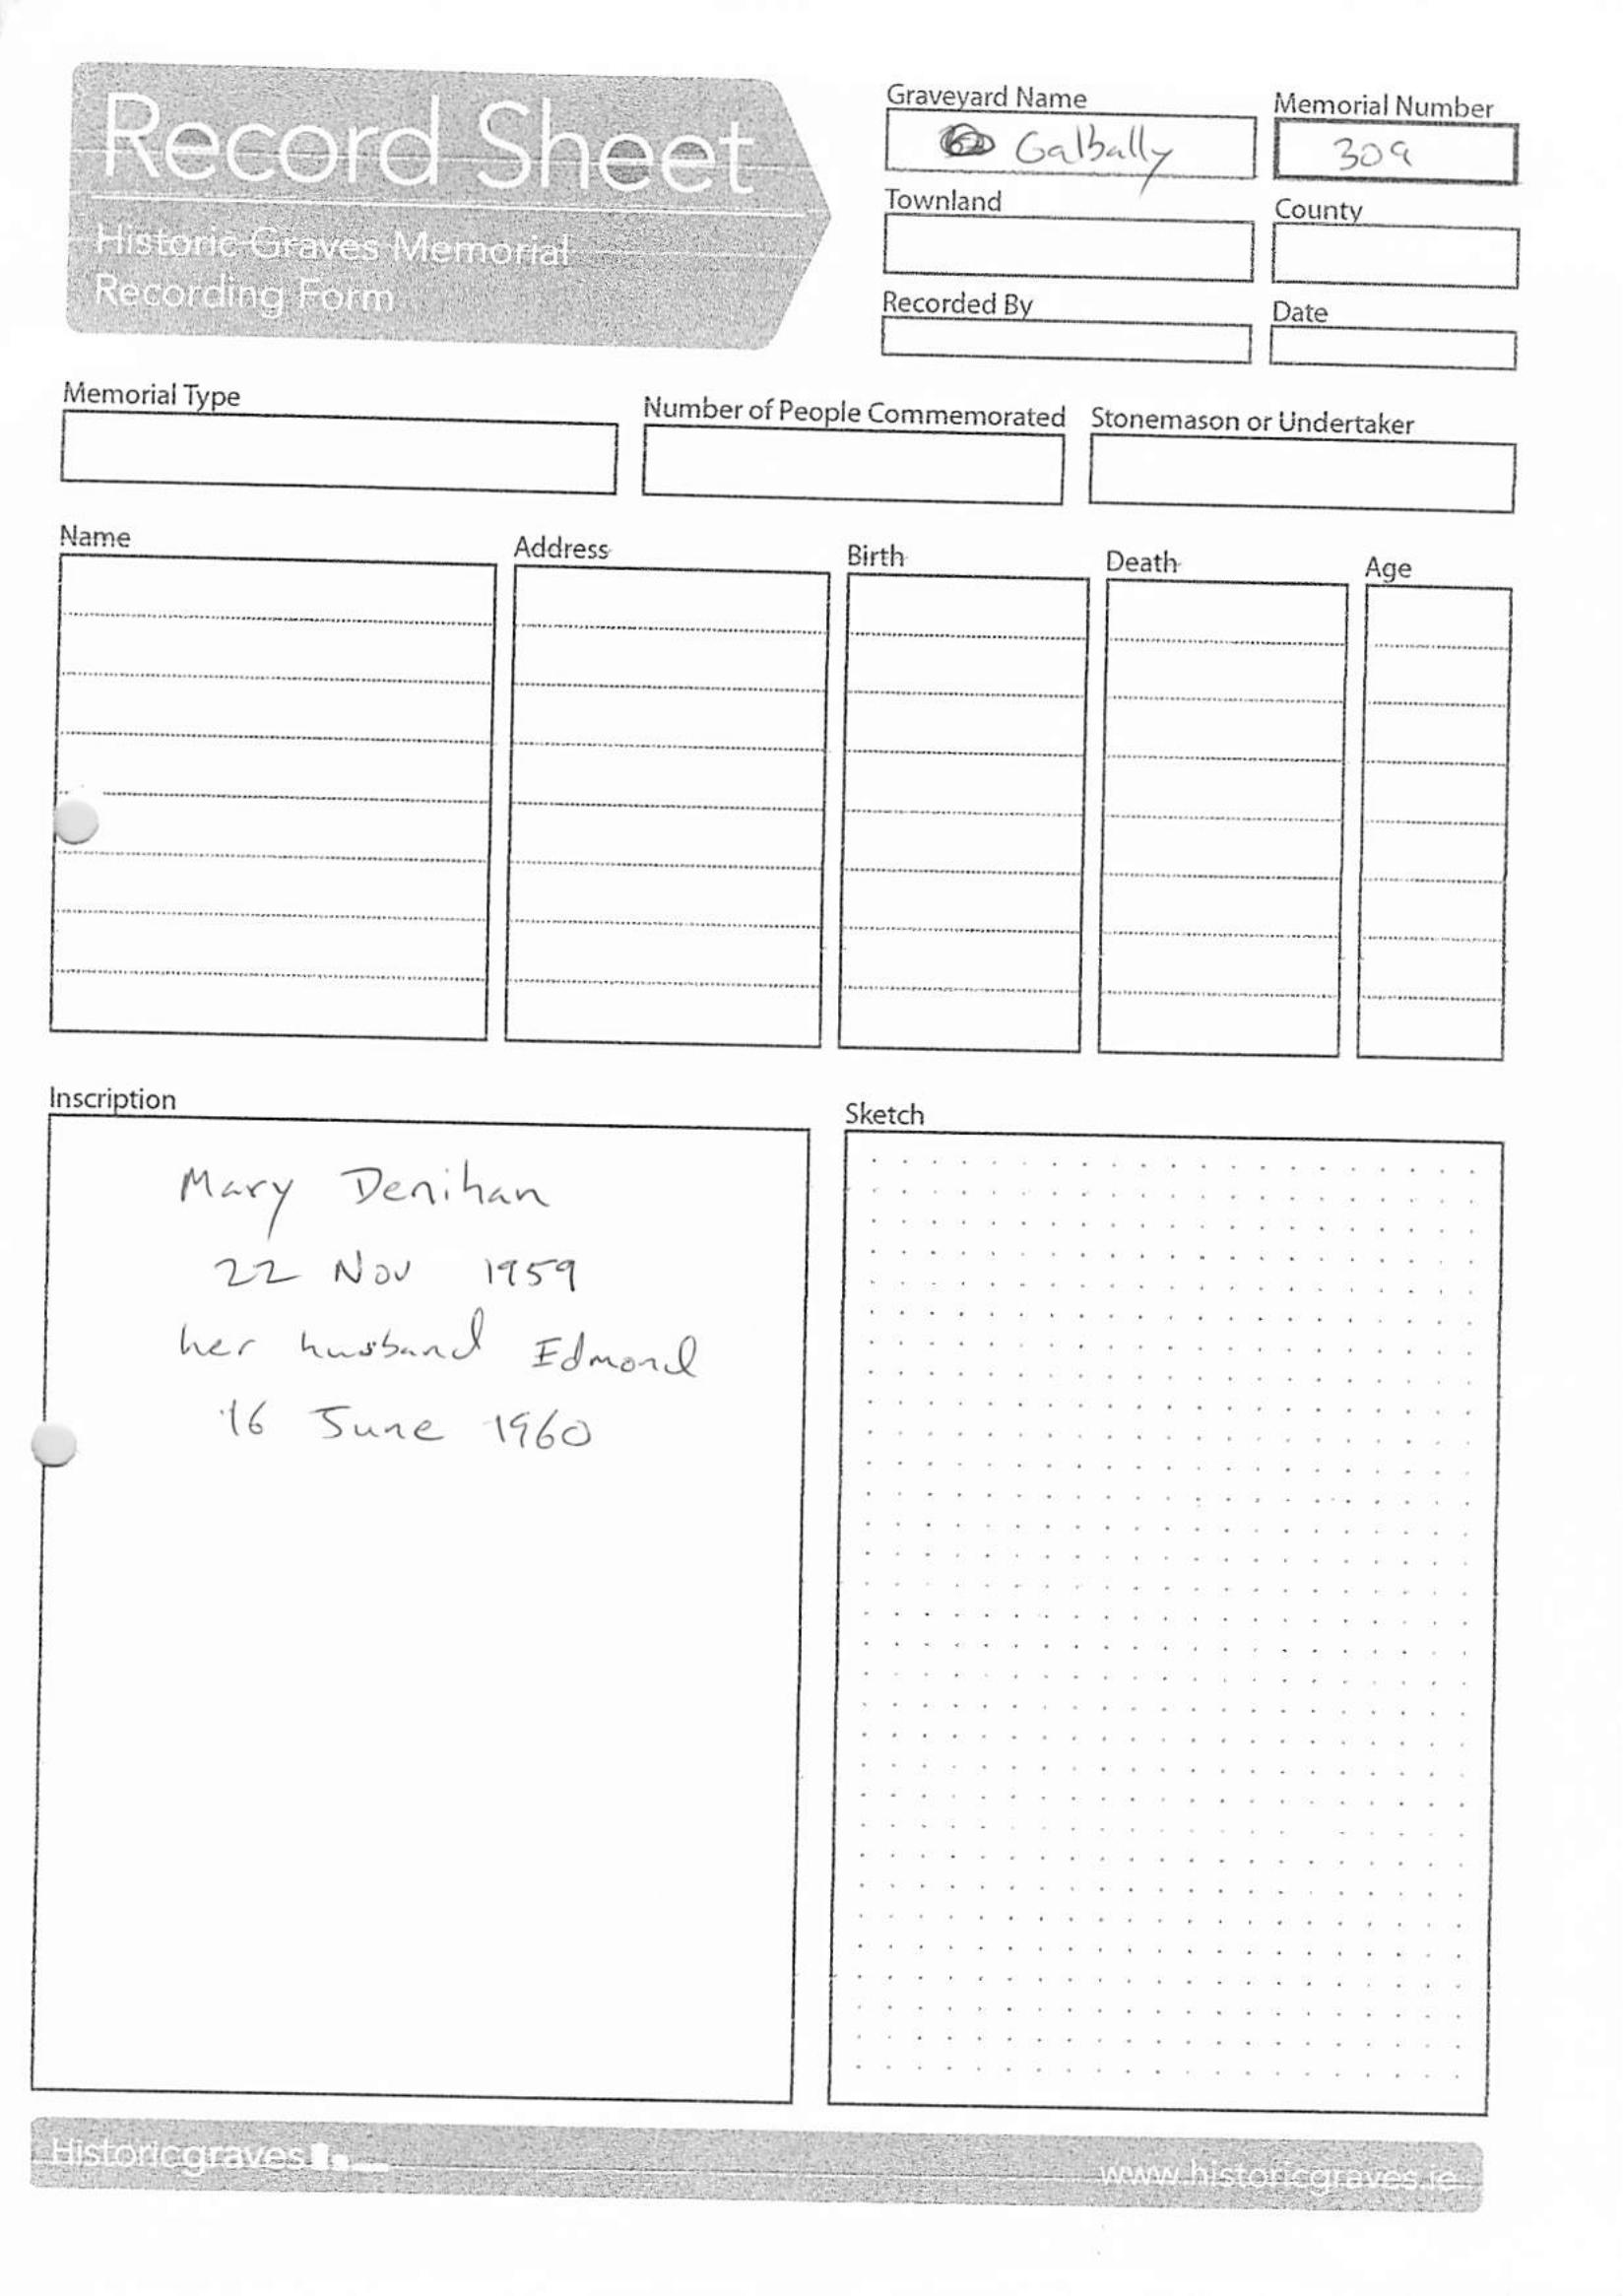 Record Sheet
Historic Graves Memorial
Recording Form
Graveyard Name
Galbally
Memorial Number
309
Townland
County
Recorded By
Date
Memorial Type
Number of People Commemorated
Stonemason or Undertaker
Name
Address
Birth
Death
Age
Inscription
Mary Denihan
22 Nov 1959
her husband Edmond
16 June 1960
Sketch
Historicgraves
www.historicgraves.ie